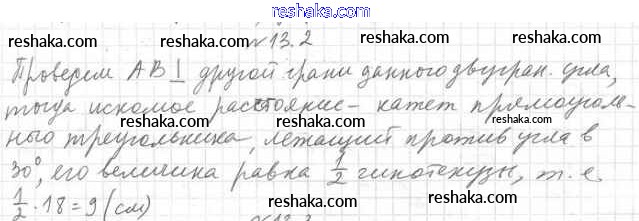 reshaka.com
reshaka.com №13.2 reshaka.com
Проведем AB⊥ другой грани данного двугран. угла,
reshaka.com reshaka.com reshaka.com
тогда искомое расстояние - катет прямоуголь-
ного треугольника, лежащий против угла в
reshaka.com reshaka.com reshaka.com
30°, его величина равна 1/2 гипотенузы, т.е
1/2 · 18 = 9 (см)
reshaka.com reshaka.com reshaka.com